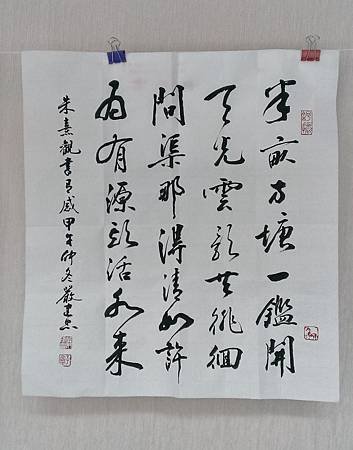 半畝方塘一鑑開
天光雲影共徘徊
問渠那得清如許
為有源頭活水來
朱熹觀書有感甲午仲冬嚴建